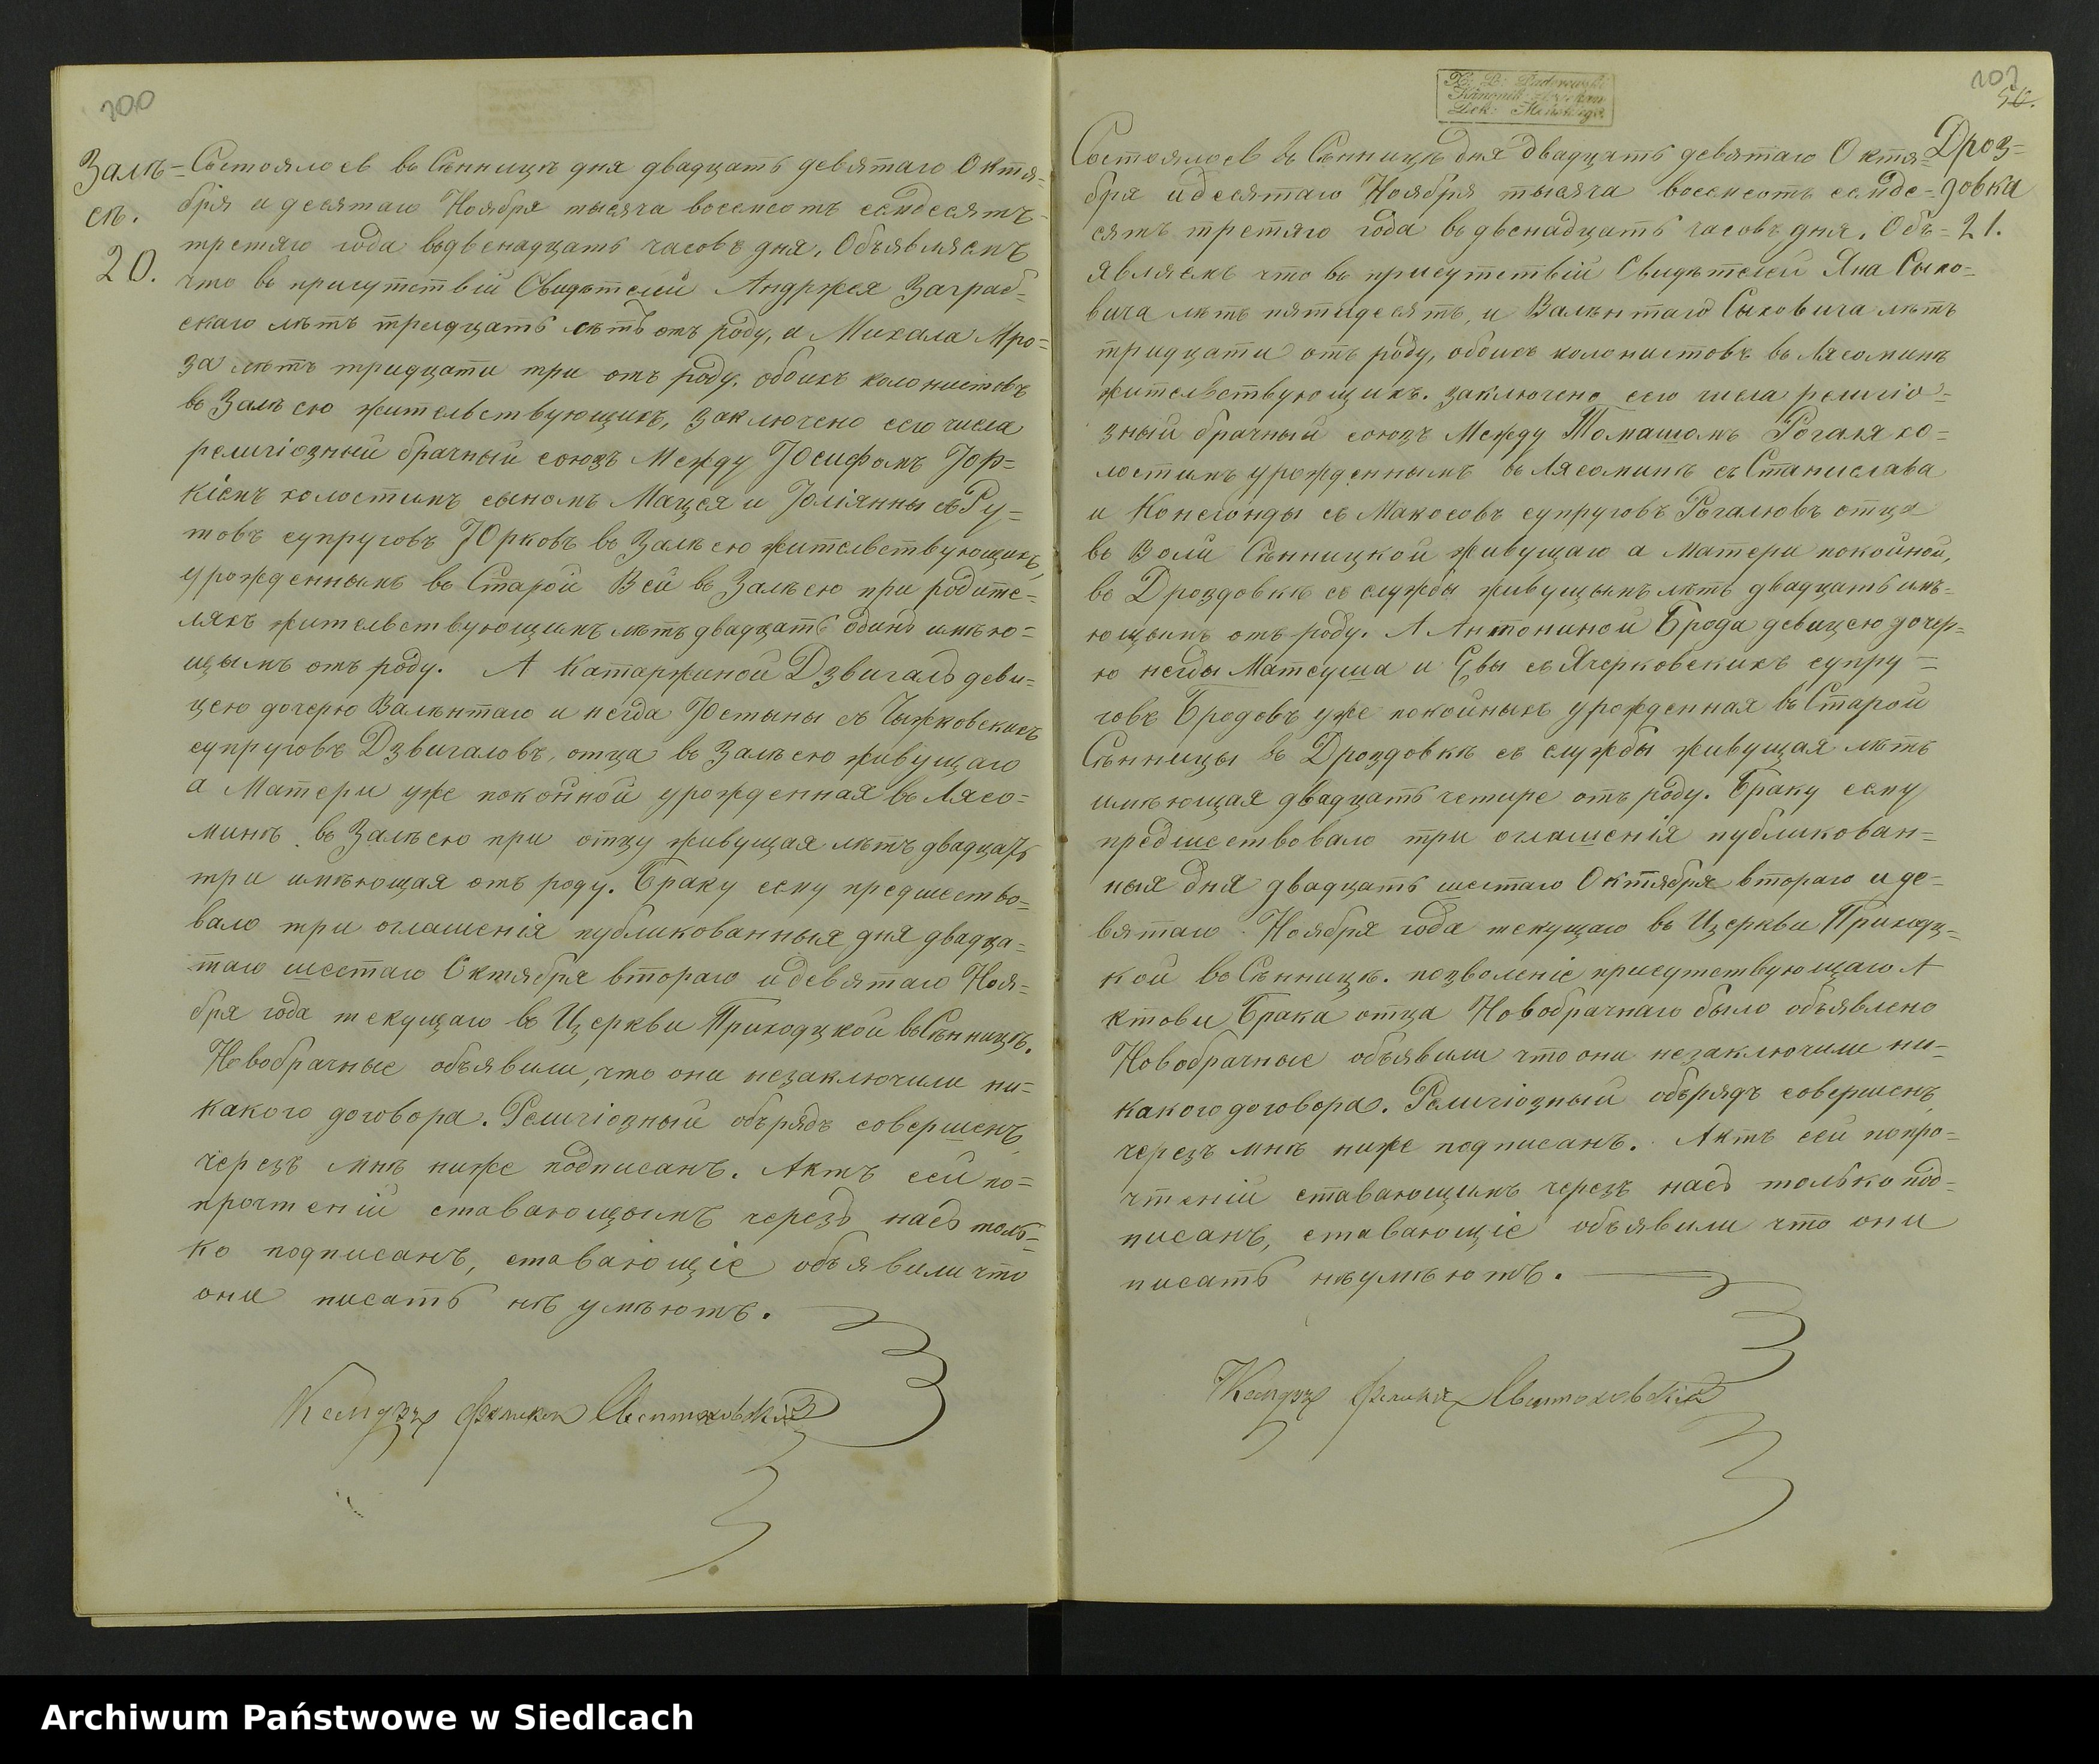 200
Залѣ=
сѣ.
20.
Состоялось въ Сѣнницѣ дня двадцать девятаго Октя=
бря и десятаго Ноября тысяча восемсотъ семдесятъ
третяго года въ двенадцать часовъ дня, Объявляемъ
что въ присутствій Свидѣтелей Анджея Заграб=
скаго лѣтъ тридцать лѣтъ отъ роду, и Михала Мро=
за лѣтъ тридцати три отъ роду, обоихъ колонистовъ
въ Залѣсю жительствующихъ, заключено сего числа
религіозный брачный союзъ Между Юсифомъ Юр=
кіемъ холостымъ сыномъ Мацея и Юліянны съ Ру=
товъ супруговъ Юрковъ въ Залѣсю жительствующихъ,
урожденнымъ въ Старой Вси въ Залѣсю при родите=
ляхъ жительствующимъ лѣтъ двадцать одинъ имѣю=
щымъ отъ роду. А Катаржиной Дзвигалъ деви=
цею дочерю Валѣнтаго и негда Юстыны съ Чыжковскихъ
супруговъ Дзвигаловъ, отца въ Залѣсю живущаго
а Матери уже покойной урожденная въ Лясо=
минѣ въ Залѣсю при отцу живущая лѣтъ двадцать
три имѣющая отъ роду. Браку сему предшество=
вало три оглашенія публикованныя дня двадца=
таго шестаго Октября втораго и девятаго Ноя=
бря года текущаго въ Церкви Приходцкой въ Сѣнницѣ.
Новобрачные объявили, что они незаключили ни=
какого договора. Религіозный обърядъ совершенъ
черезъ мнѣ ниже подписанъ. Актъ сей по=
прочтеній ставающымъ черезъ насъ толь=
ко подписанъ, ставающіе объявили что
они писать нѣ умѣютъ.
Ксендзъ Феликсъ
202
56.
Дроз=
довка
21.
Состоялось въ Сѣнницѣ дня двадцать девятаго Октя=
бря и десятаго Ноября тысяча восемсотъ семде=
сятъ третяго года въ двенадцать часовъ дня. Объ=
являемъ что въ присутствій Свидѣтелей Яна Сыхо=
вича лѣтъ пятидесятъ, и Валѣнтаго Сыховича лѣтъ
тридцати отъ роду, обоихъ колонистовъ въ Лясоминѣ
жительствующихъ. заключено сего числа религіо=
зный брачный союзъ Между Томашомъ Рогаля хо=
лостымъ урожденнымъ въ Лясоминѣ съ Станислава
и Конегонды съ Макосовъ супруговъ Рогалювъ отца
въ Воли Сѣнницкой живущаго а Матери покойной,
въ Дроздовкѣ съ службы живущымъ лѣтъ двадцать имѣ=
ющымъ отъ роду. А Антониной Брода девицею дочер=
ю негды Матеуша и Евы съ Ячерковскихъ супру=
говъ Бродовъ уже покойныхъ урожденная въ Старой
Сѣнницы въ Дроздовкѣ съ службы живущая лѣтъ
имѣющая двадцать четире отъ роду. Браку сему
предшествовало три оглашенія публикован=
ныя дня двадцать шестаго Октября втораго и де=
вятаго Ноября года текущаго въ Церкви Приходц=
кой въ Сѣнницѣ. позволеніе присутствующаго А
ктови Брака отца Новобрачнаго было объявлено
Новобрачные объявили что они незаключили ни=
какого договора. Религіозный обърядъ совершенъ
черезъ мнѣ ниже подписанъ. Актъ сей попро=
чтеній ставающымъ черезъ насъ только под=
писанъ, ставающіе объявили что они
писать нѣумѣютъ.
Ксендзъ Феликсъ
Archiwum Państwowe w Siedlcach